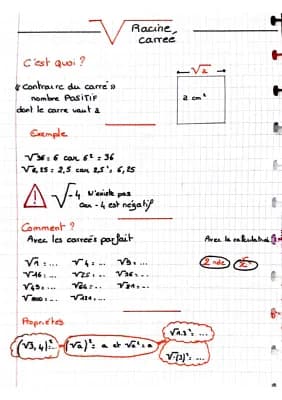 Racine
carrée
C'est quoi ?
« contraire du carré »
nombre POSITIF
dont le carré vaut 2
√2
2 cm²
Exemple
√36 = 6 car 6² = 36
√6,25 = 2,5 car 2,5² = 6,25
√-4 N'existe pas
car -4 est négatif
Comment ?
Avec les carrés parfait
√1 = ... √4 = ... √9 = ...
√16 = ... √25 = ... √36 = ...
√49 = ... √64 = ... √81 = ...
√100 = ... √121 = ...
Avec la
2nde
Propriétés
(√3,4)² = (√a)² = a et √a² = a